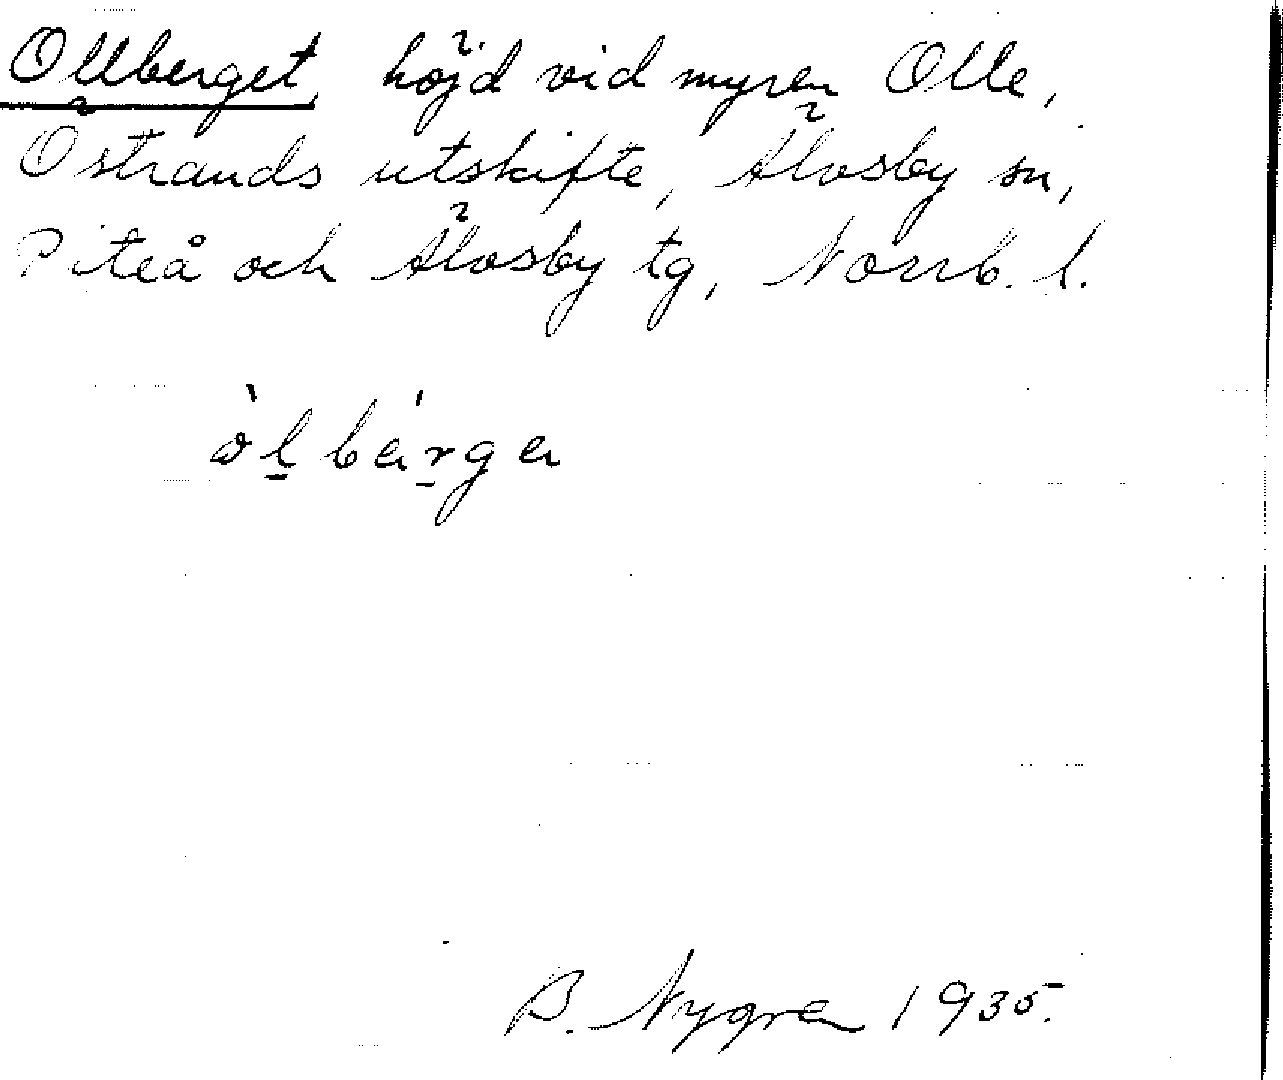 Ollberget, höjd vid myren Olle,
Östrands utskifte, Älvsby sn,
Piteå och Älvsby tg, Norrb. l.
òl̲bér̲ga
B. Nygren 1935.